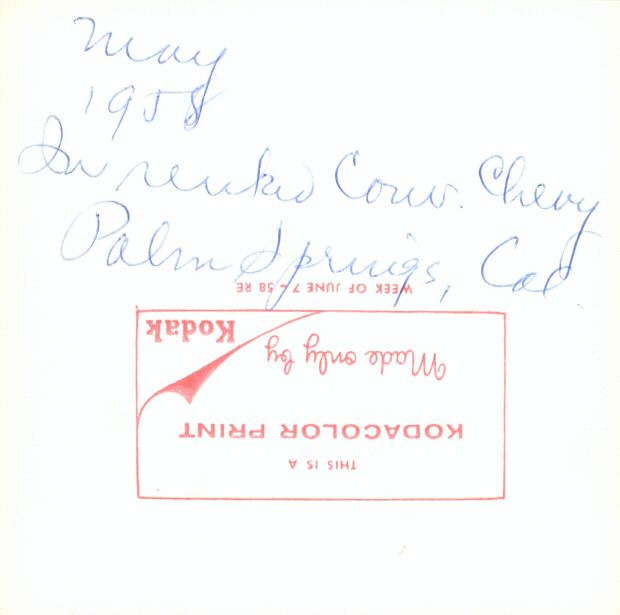 May
1958
In rented Conv. Chevy
Palm Springs, Cal
WEEK OF JUNE 7 - 58 RE
THIS IS A
KODACOLOR PRINT
Made only by
Kodak